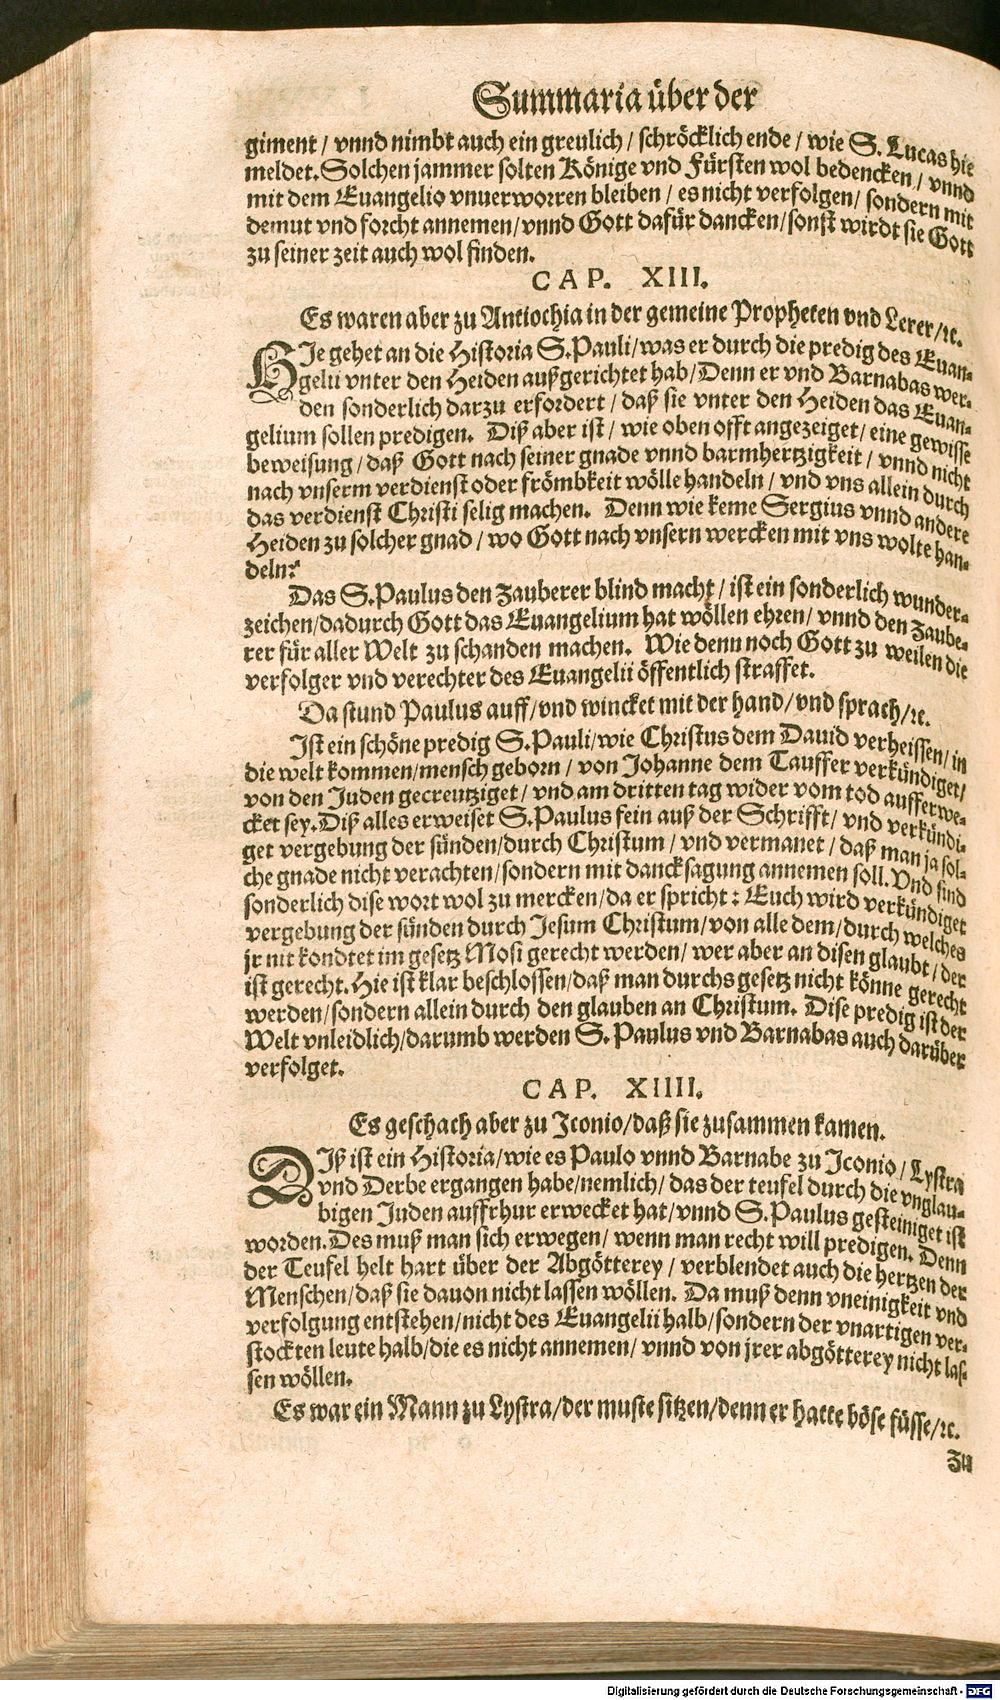 Summaria über der
giment / vnnd nimbt auch ein greulich / schröcklich ende / wie S. Lucas hie
meldet. Solchen jammer solten Könige vnd Fürsten wol bedencken / vnnd
mit dem Euangelio vnuerworren bleiben / es nicht verfolgen / sondern mit
demut vnd forcht annemen / vnnd Gott dafür dancken / sonst wirdt sie Gott
zu seiner zeit auch wol finden.
CAP. XIII.
Es waren aber zu Antiochia in der gemeine Propheten vnd Lerer / ꝛc.
HIe gehet an die Historia S. Pauli / was er durch die predig des Euan-
gelii vnter den Heiden außgerichtet hab / Denn er vnd Barnabas wer-
den sonderlich darzu erfordert / daß sie vnter den Heiden das Euan-
gelium sollen predigen. Diß aber ist / wie oben offt angezeiget / eine gewisse
beweisung / daß Gott nach seiner gnade vnnd barmhertzigkeit / vnnd nicht
nach vnserm verdienst oder frömbkeit wölle handeln / vnd vns allein durch
das verdienst Christi selig machen. Denn wie keme Sergius vnnd andere
Heiden zu solcher gnad / wo Gott nach vnsern wercken mit vns wolte han-
deln?
Das S. Paulus den Zauberer blind macht / ist ein sonderlich wunder-
zeichen / dadurch Gott das Euangelium hat wöllen ehren / vnnd den Zaube-
rer für aller Welt zu schanden machen. Wie denn noch Gott zu weilen die
verfolger vnd verechter des Euangelii öffentlich straffet.
Da stund Paulus auff / vnd wincket mit der hand / vnd sprach / ꝛc.
Ist ein schöne predig S. Pauli / wie Christus dem Dauid verheissen / in
die welt kommen / mensch geborn / von Johanne dem Tauffer verkündiget /
von den Juden gecreutziget / vnd am dritten tag wider vom tod aufferwe-
cket sey. Diß alles erweiset S. Paulus fein auß der Schrifft / vnd verkündi-
get vergebung der sünden / durch Christum / vnd vermanet / daß man ja sol-
che gnade nicht verachten / sondern mit dancksagung annemen soll. Vnd sind
sonderlich dise wort wol zu mercken / da er spricht : Euch wird verkündiget
vergebung der sünden durch Jesum Christum / von alle dem / durch welches
jr nit kondtet im gesetz Mosi gerecht werden / wer aber an disen glaubt / der
ist gerecht. Hie ist klar beschlossen / daß man durchs gesetz nicht könne gerecht
werden / sondern allein durch den glauben an Christum. Dise predig ist der
Welt vnleidlich / darumb werden S. Paulus vnd Barnabas auch darüber
verfolget.
CAP. XIIII.
Es geschach aber zu Iconio / daß sie zusammen kamen.
DIß ist ein Historia / wie es Paulo vnnd Barnabe zu Iconio / Lystra
vnd Derbe ergangen habe / nemlich / das der teufel durch die vnglau-
bigen Juden auffrhur erwecket hat / vnnd S. Paulus gesteiniget ist
worden. Des muß man sich erwegen / wenn man recht will predigen. Denn
der Teufel helt hart über der Abgötterey / verblendet auch die hertzen der
Menschen / daß sie dauon nicht lassen wöllen. Da muß denn vneinigkeit vnd
verfolgung entstehen / nicht des Euangelii halb / sondern der vnartigen ver-
stockten leute halb / die es nicht annemen / vnnd von jrer abgötterey nicht las-
sen wöllen.
Es war ein Mann zu Lystra / der muste sitzen / denn er hatte böse füsse / ꝛc.
Zu
Digitalisierung gefördert durch die Deutsche Forschungsgemeinschaft - DFG